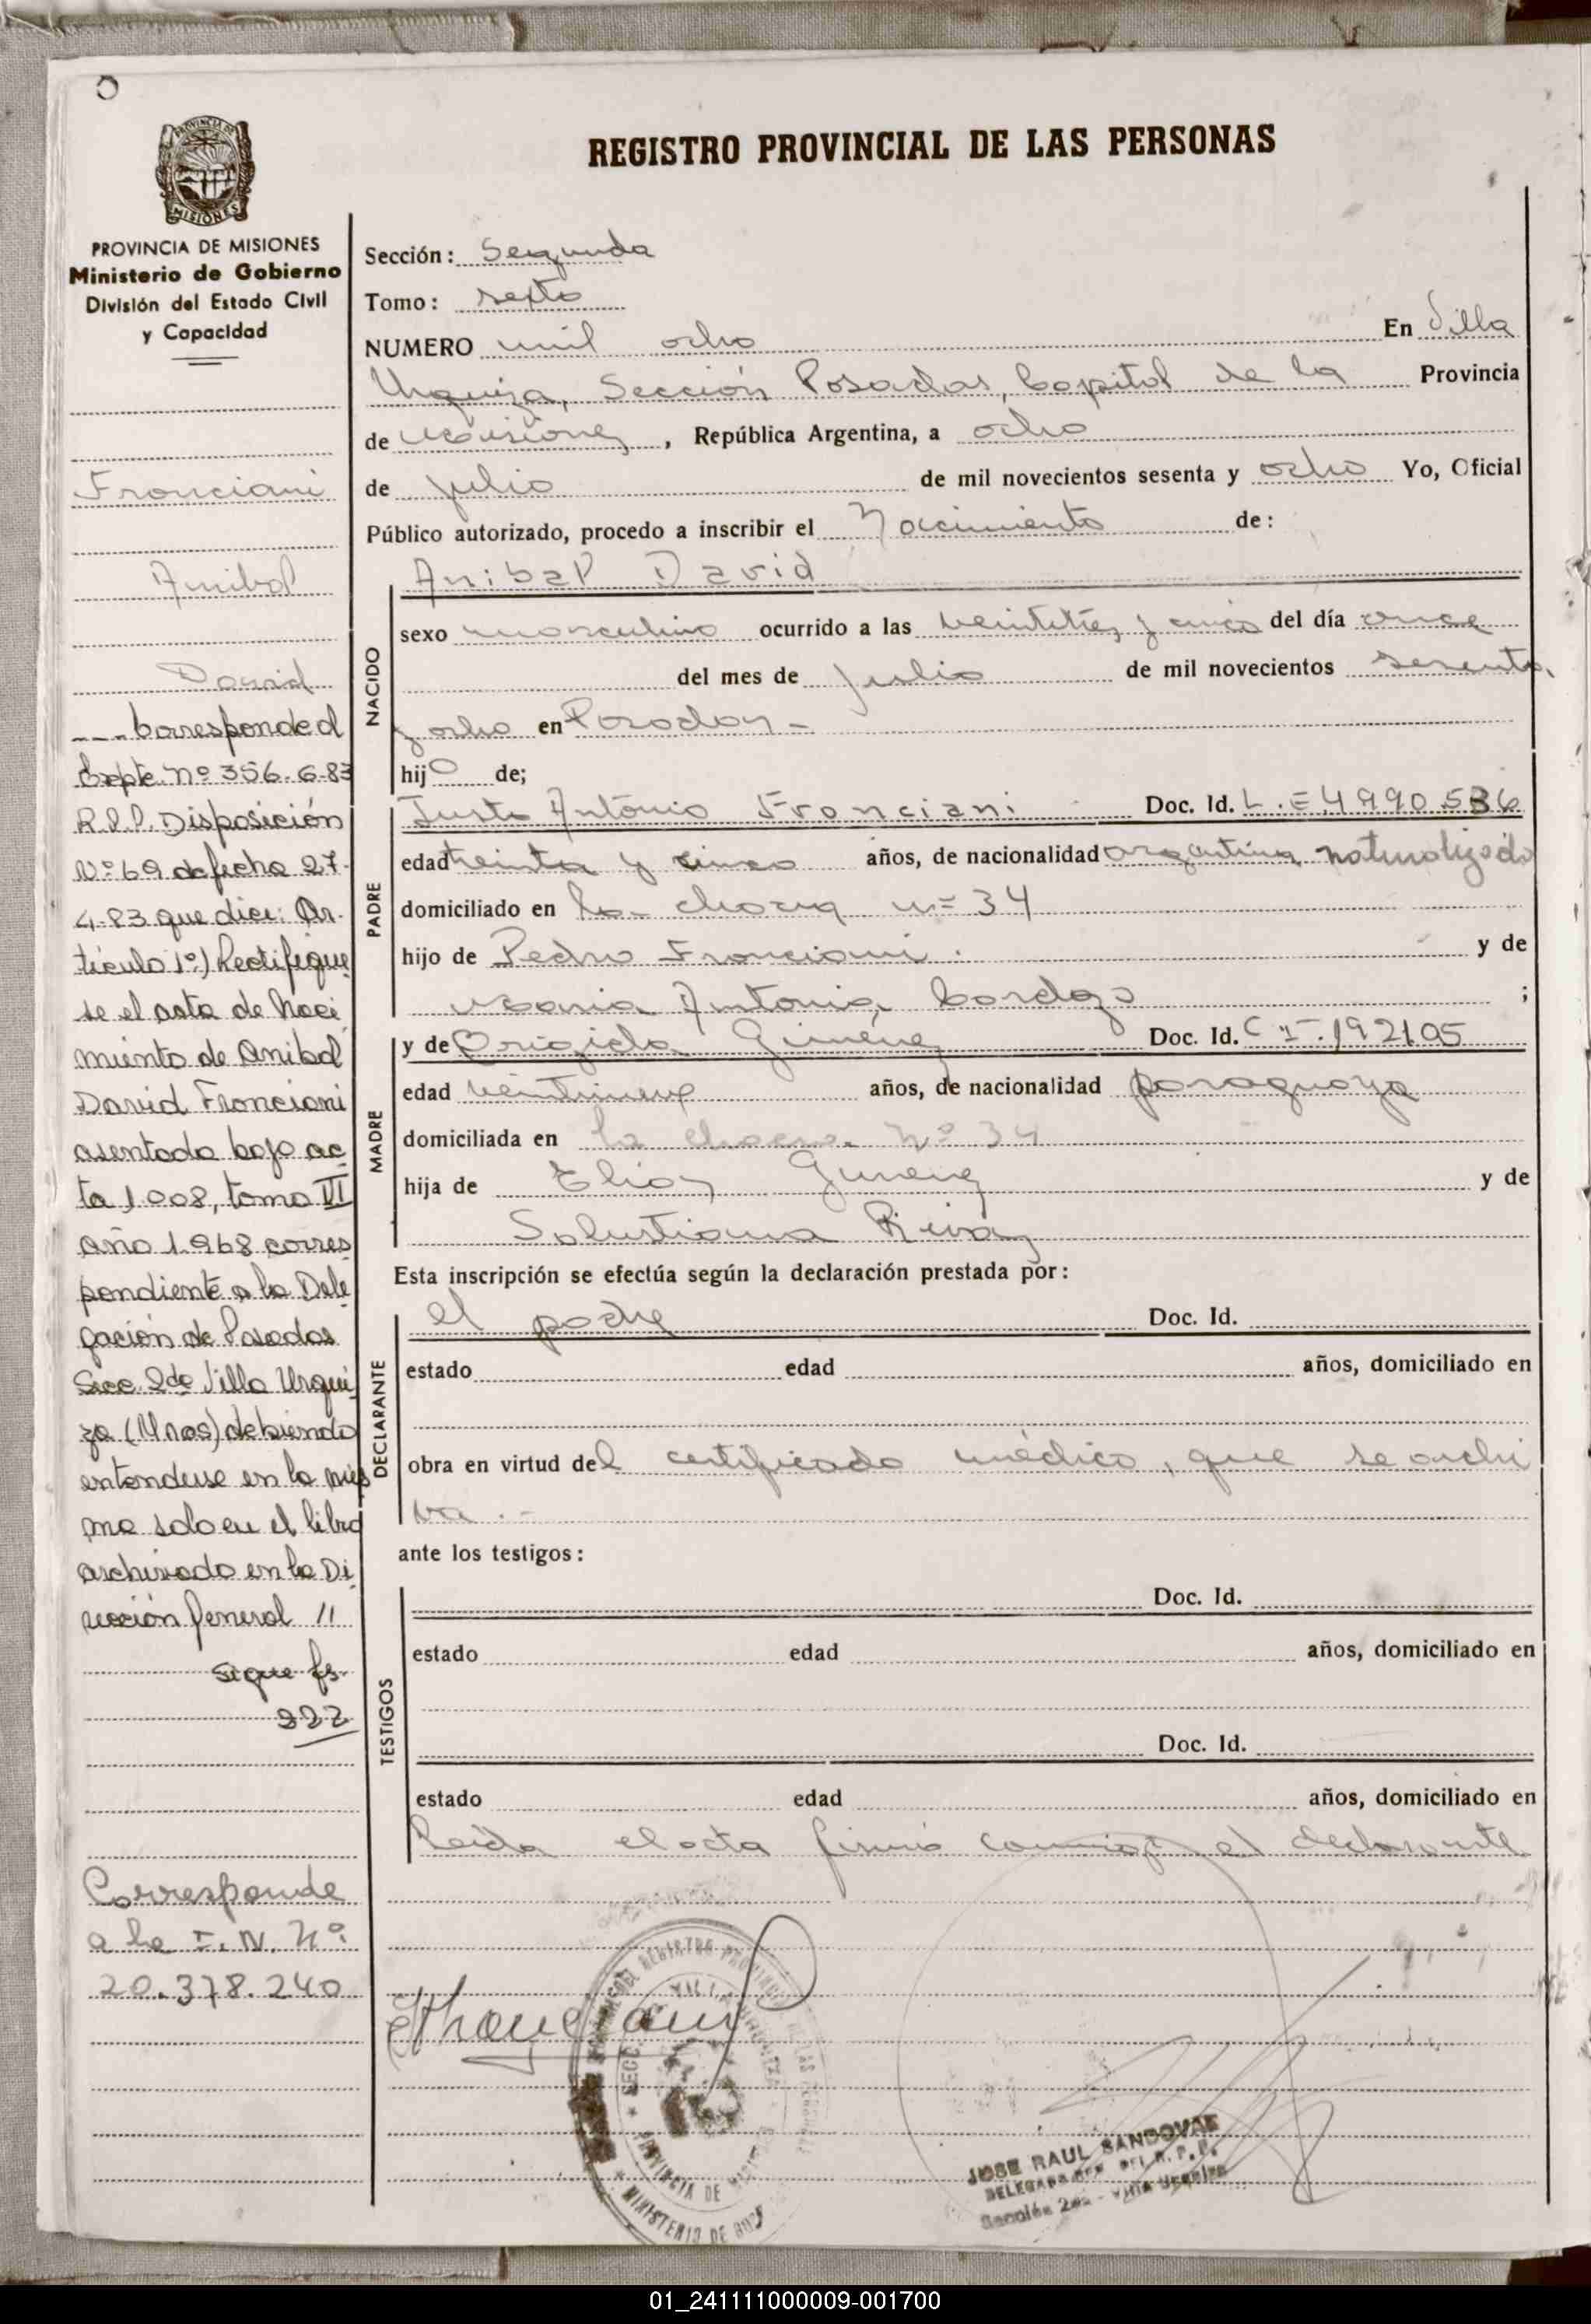 REGISTRO PROVINCIAL DE LAS PERSONAS
PROVINCIA DE MISIONES
PROVINCIA DE MISIONES
Ministerio de Gobierno
División del Estado Civil
y Capacidad
Franciani
Anibal
David
---Corresponde al
Expte. Nº 356-6-83
R.P.P. Disposición
Nº 69 de fecha 27-
4-83 que dice: Ar-
tículo 1º) Rectifique
se el acta de Naci
miento de Anibal
David Franciani
asentado bajo ac
ta 1.008, tomo VI
año 1.968 corres
pondiente a la Dele
gación de Posadas
Secc. 2da Villa Urqui
za (Mnes) debiendo
entenderse en la mis
ma solo en el libro
archivado en la Di
rección General //
sigue fs.
322
Corresponde
a la I.N. Nº
20.378.240
Sección: Segunda
Tomo: sexto
NUMERO mil ocho En Villa
Urquiza, Sección Posadas, Capital de la Provincia
de Misiones, República Argentina, a ocho
de julio de mil novecientos sesenta y ocho Yo, Oficial
Público autorizado, procedo a inscribir el Nacimiento de:
Anibal David
NACIDO
sexo masculino ocurrido a las veintitres y cinco del día once
del mes de Julio de mil novecientos sesenta
y ocho en Posadas -
hijo de;
PADRE
Justo António Franciani Doc. Id. L.E 4990.536
edad treinta y cinco años, de nacionalidad argentina naturalizado
domiciliado en la chacra nº 34
hijo de Pedro Franciani y de
Maria Antonia Cardozo ;
MADRE
y de Brigida Giménez Doc. Id. C I. 192105
edad veintinueve años, de nacionalidad paraguaya
domiciliada en la chacra Nº 34
hija de Elias Gimenez y de
Salustiana Rivas
Esta inscripción se efectúa según la declaración prestada por:
DECLARANTE
el padre Doc. Id.
estado edad años, domiciliado en
obra en virtud del certificado médico, que se archi
va .-
ante los testigos:
TESTIGOS
Doc. Id.
estado edad años, domiciliado en
Doc. Id.
estado edad años, domiciliado en
Leida el acta firmó conmigo el declarante
REGISTRO PROVINCIAL DE LAS PERSONAS
PROVINCIA DE
MINISTERIO DE
JOSE RAUL SANDOVAL
Sección 2da - Villa Urquiza
01_241111000009-001700